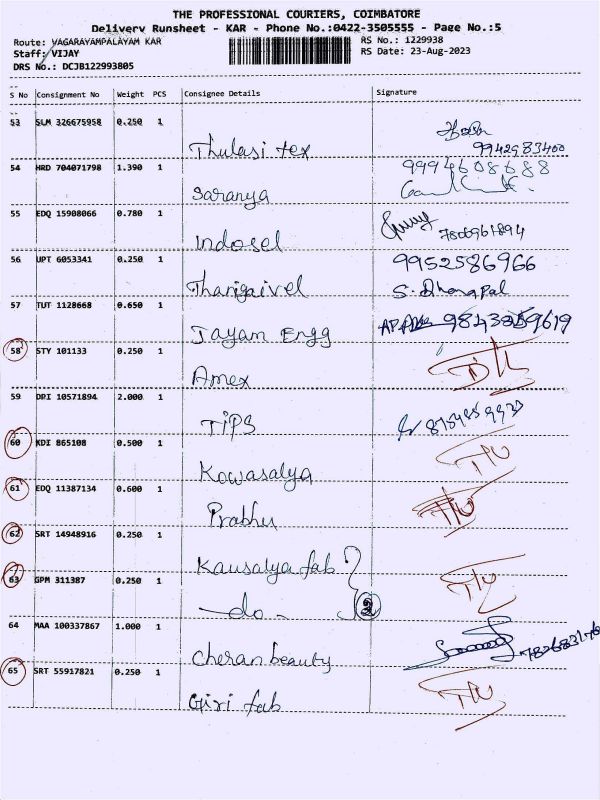 THE PROFESSIONAL COURIERS, COIMBATORE
Delivery Runsheet - KAR - Phone No.:0422-3505555 - Page No.:5
Route: VAGARAYAMPALAYAM KAR RS No.: 1229938
Staff: VIJAY RS Date: 23-Aug-2023
DRS No.: DCJB122993805
S No Consignment No Weight PCS Consignee Details Signature
53 SLM 326675958 0.250 1
Thulasi tex 9942983400
54 HRD 704071798 1.390 1 9994608688
Saranya
55 EDQ 15908066 0.780 1
Indosel 7806961894
56 UPT 6053341 0.250 1 9952586966
Thangaivel S. Dhanapal
57 TUT 1128668 0.650 1
Jayam Engg
58 STY 101133 0.250 1
Amex
59 DPI 10571894 2.000 1
TIPS
60 KDI 865108 0.500 1
Kowasalya
61 EDQ 11387134 0.600 1
Prabhu
62 SRT 14948916 0.250 1
Kausalya fab
63 GPM 311387 0.250 1
-do- 2
64 MAA 100337867 1.000 1
Cheran beauty
65 SRT 55917821 0.250 1
Giri fab